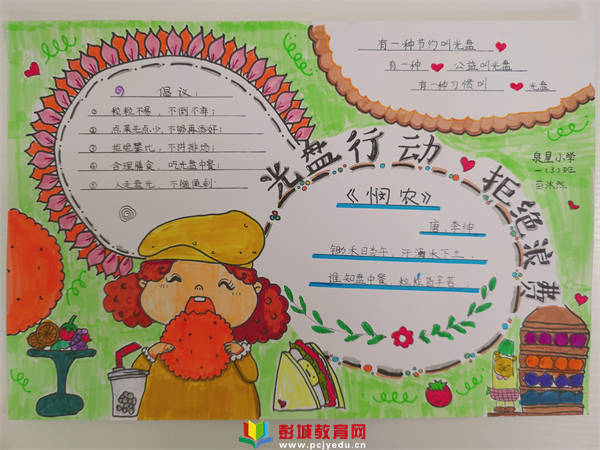 倡议：
① 粒粒不易，不倒不弃；
② 点菜先点少，不够再添好；
③ 拒绝攀比，不讲排场；
④ 合理膳食，吃光盘中餐；
⑤ 人走盘光，不能随剩
有一种节约叫光盘
有一种 公益叫光盘
有一种习惯叫 光盘
光盘行动 拒绝浪费
泉星小学
一（3）班
苗沐然
《悯农》
唐 李绅
锄禾日当午，汗滴禾下土，
谁知盘中餐 粒粒皆辛苦
彭城教育网
www.pcjyedu.cn